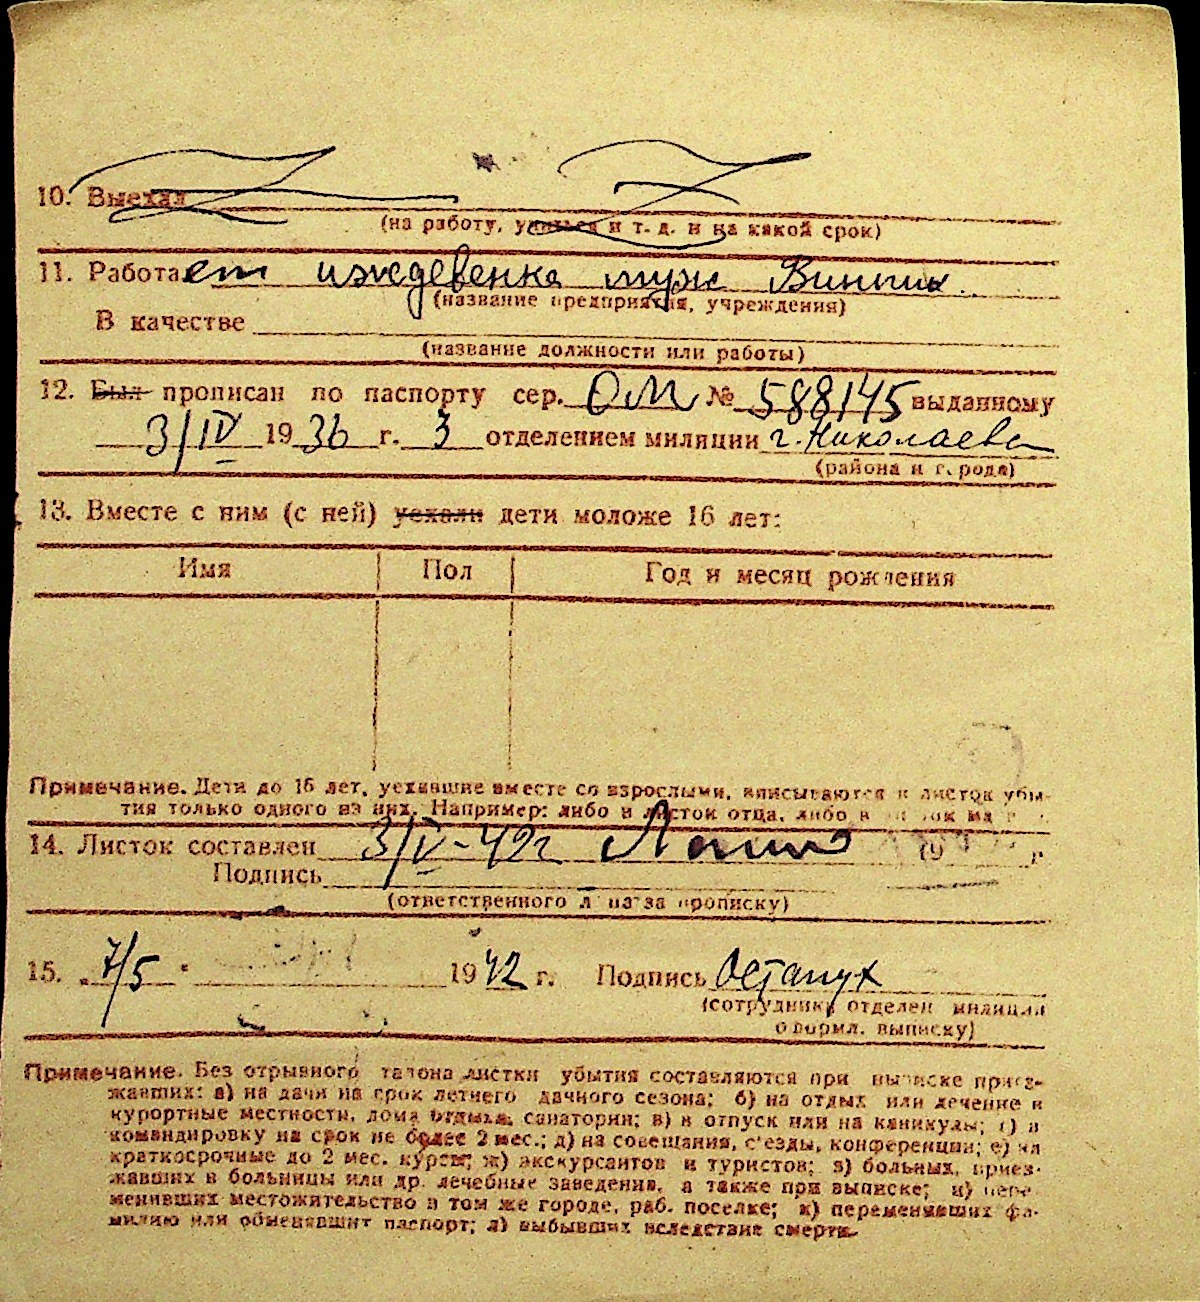 10. Выехал
(на работу, учиться и т. д. и на какой срок)
11. Работает иждевенка муж
(название предприятия, учреждения)
В качестве
(название должности или работы)
12. Был прописан по паспорту сер. ОМ № 588145 выданному
3/IV 1936 г. 3 отделением милиции г. Николаева
(района и города)
13. Вместе с ним (с ней) уехали дети моложе 16 лет:
Имя Пол Год и месяц рождения
Примечание. Дети до 16 лет, уехавшие вместе со взрослыми, вписываются в листок убы-
тия только одного из них. Например: либо в листок отца, либо в листок ма
14. Листок составлен 3/IV-42г 19 г.
Подпись
(ответственного лица за прописку)
15. "7/5" 1942 г. Подпись Остапук
(сотрудника отделен милиции
оформл. выписку)
Примечание. Без отрывного талона листки убытия составляются при выписке приез-
жавших: а) на дачи на срок летнего дачного сезона; б) на отдых или лечение в
курортные местности, дома отдыха, санатории; в) в отпуск или на каникулы; г) в
командировку на срок не более 2 мес.; д) на совещания, съезды, конференции; е) на
краткосрочные до 2 мес. курсы; ж) экскурсантов и туристов; з) больных, приез-
жавших в больницы или др. лечебные заведения, а также при выписке; и) пере-
менивших местожительство в том же городе, раб. поселке; к) переменивших фа-
милию или обменявшит паспорт; л) выбывших вследствие смерти.